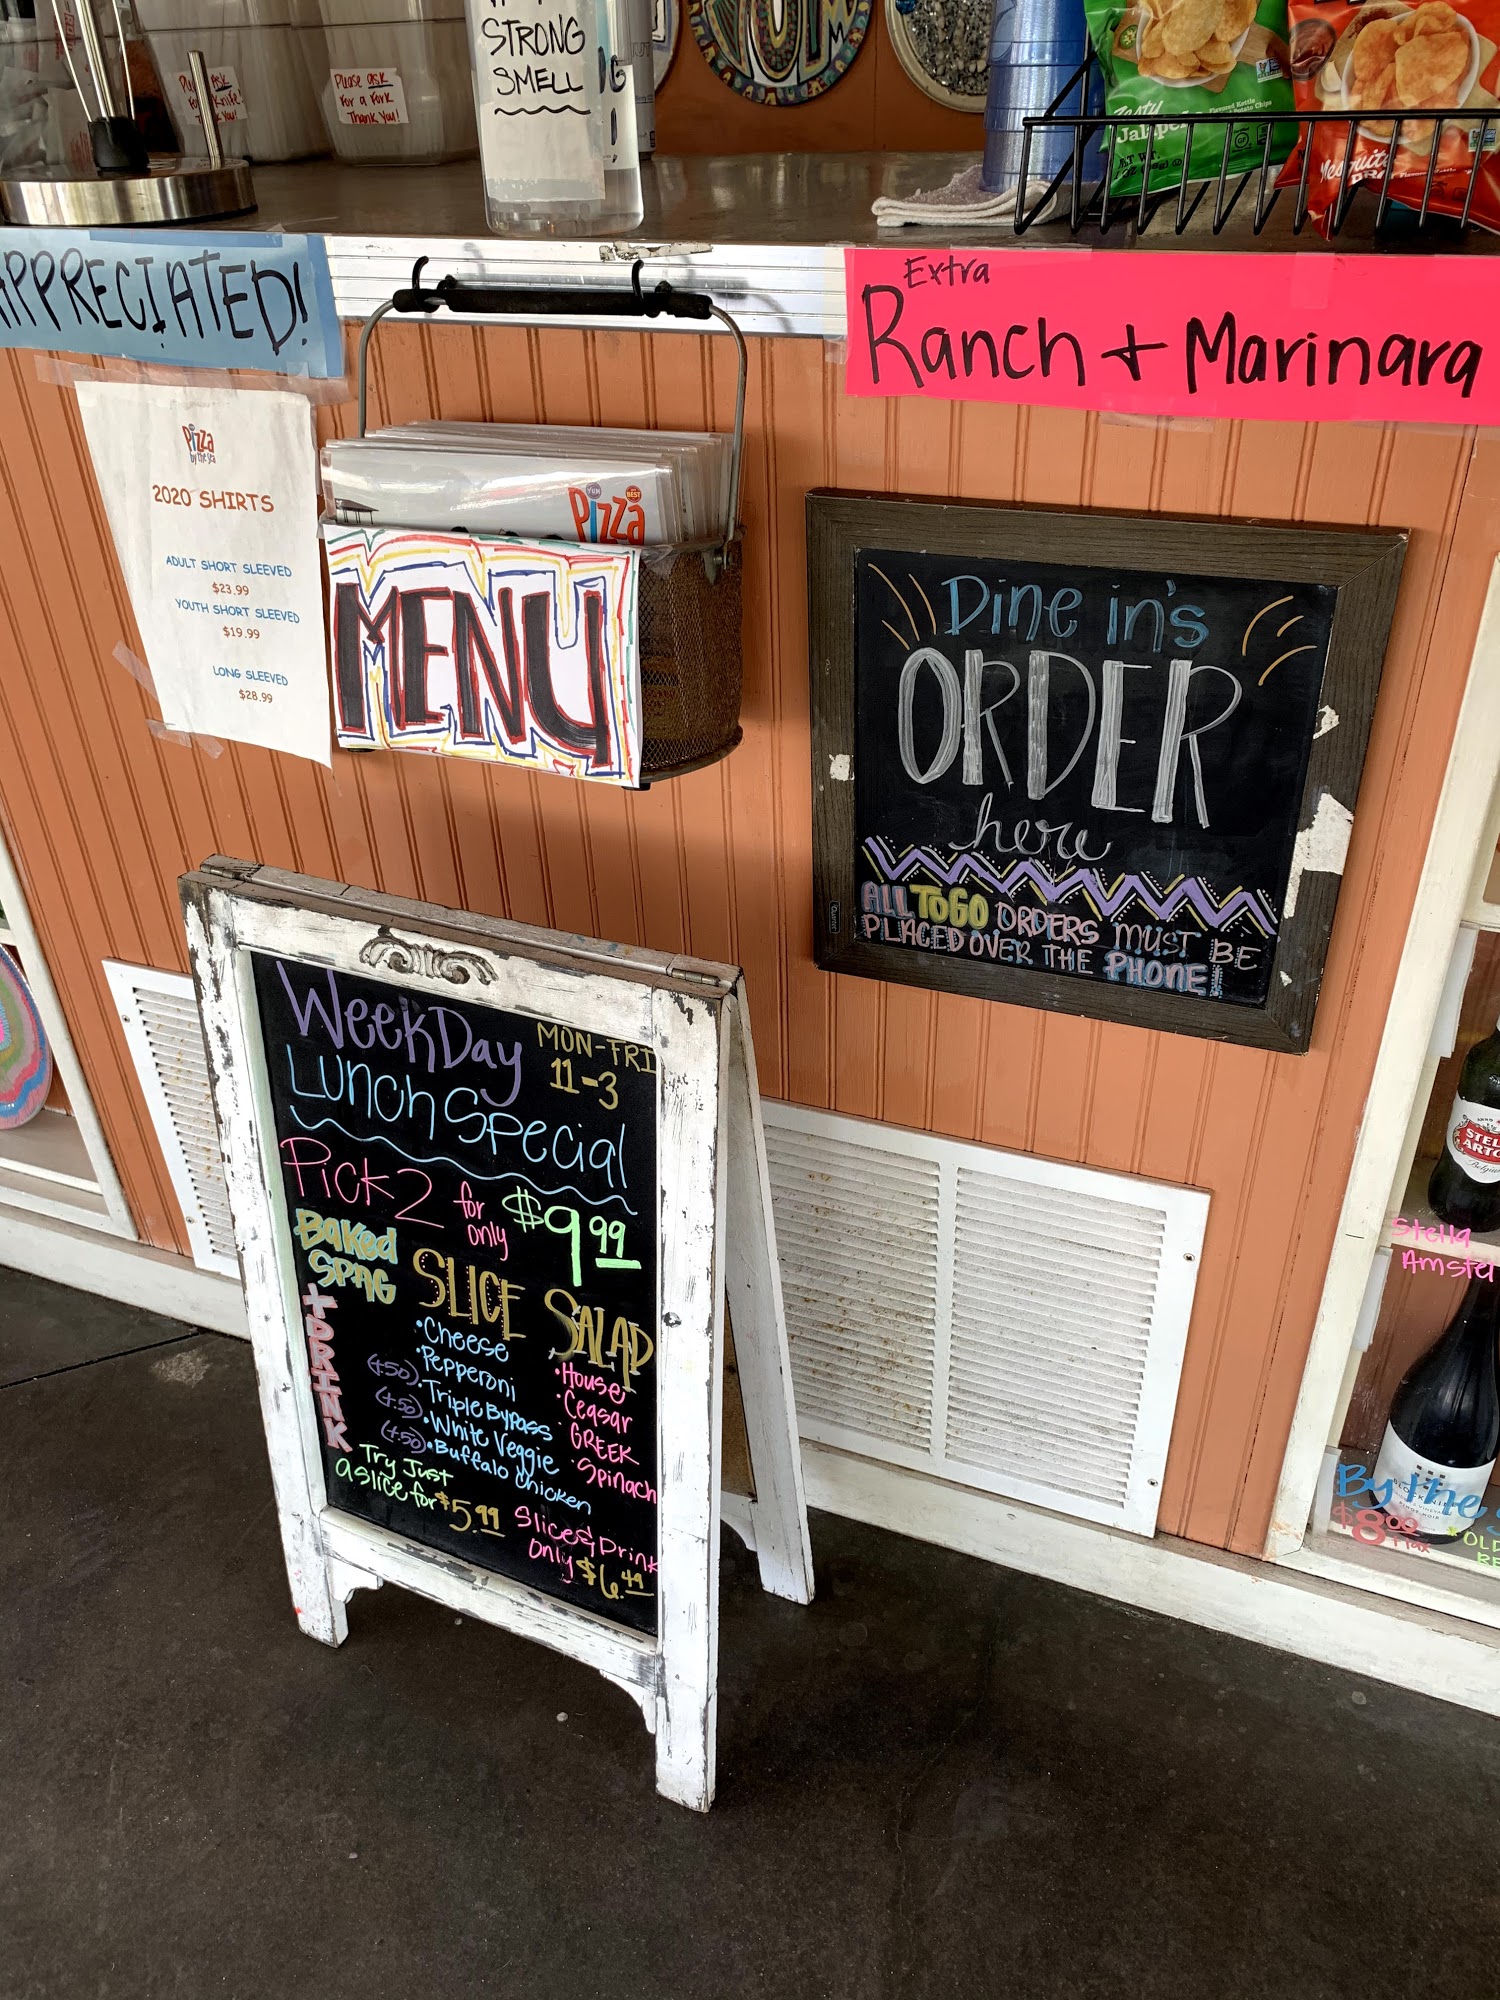 STRONG
SMELL
Please ask
For a Fork
Thank You!
APPRECIATED!
Extra
Ranch + Marinara
Zesty
Mesquite
BBQ
Pizza
by the sea
2020 SHIRTS
ADULT SHORT SLEEVED
$23.99
YOUTH SHORT SLEEVED
$19.99
LONG SLEEVED
$28.99
YUM
BEST
Pizza
MENU
Dine in's
ORDER
here
ALL TO GO ORDERS MUST BE
PLACED OVER THE PHONE!
WeekDay
MON-FRI
11-3
Lunch Special
Pick 2 for only $9.99
Baked
SPAG
+DRINK
SLICE
•Cheese
•Pepperoni
(+.50) •Triple Bypass
(+.50) •White Veggie
(+.50) •Buffalo Chicken
SALAD
•House
•Ceasar
•GREEK
•Spinach
Try Just
a slice for $5.99
Slice & Drink
only $6.49
STELLA
ARTO
Stella
Amstel
By the
$8.00
OLD